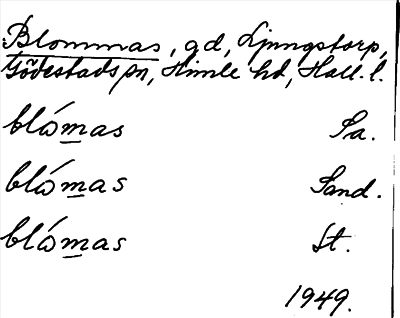 Blommas, gd, Ljungstorp,
Gödestads sn, Himle hd, Hall. l.
blómas Sa.
blómas Sand.
blómas St.
1949.